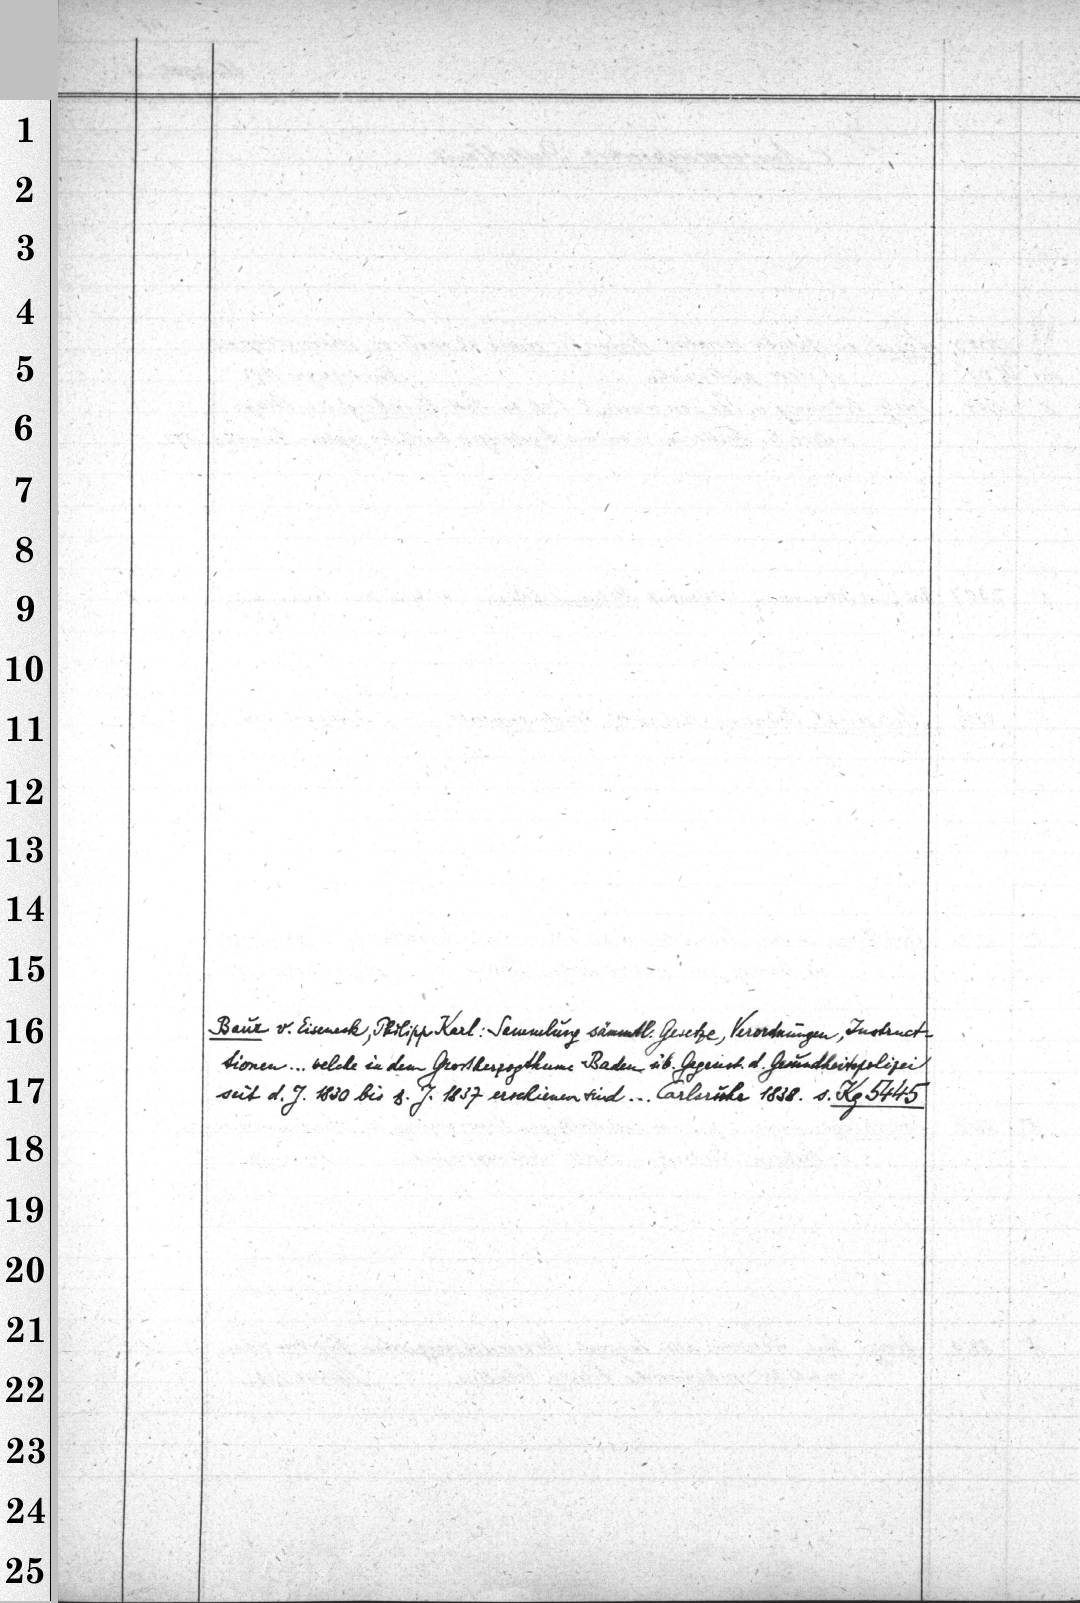 1
2
3
4
5
6
7
8
9
10
11
12
13
14
15
16
Baur v. Eiseneck, Philipp Karl: Sammlung sämmtl. Gesetze, Verordnungen, Instruct-
tionen... welche in dem Grossherzogthume Baden üb. Gegenst. d. Gesundheitspolizei
17
seit d. J. 1830 bis z. J. 1837 erschienen sind ... Carlsruhe 1838. s. Kg 5445
18
19
20
21
22
23
24
25